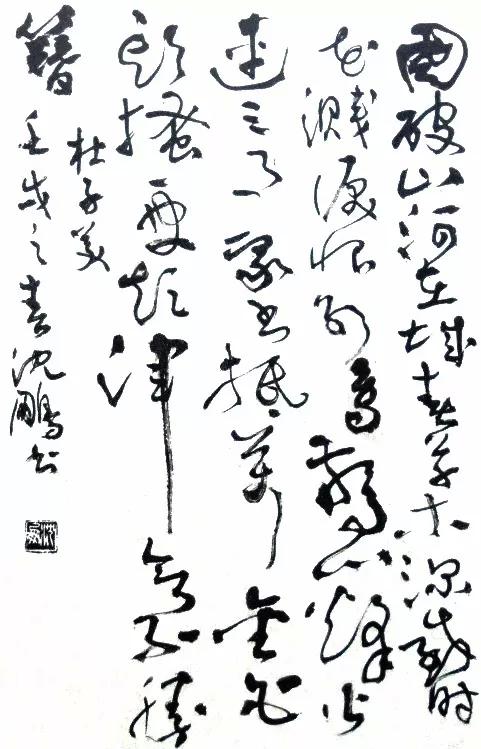 國破山河在城春草木深感時
花濺淚恨別鳥驚心烽火
連三月家書抵萬金白
頭搔更短渾欲不勝
簪
杜子美
壬戌之春沈鵬書